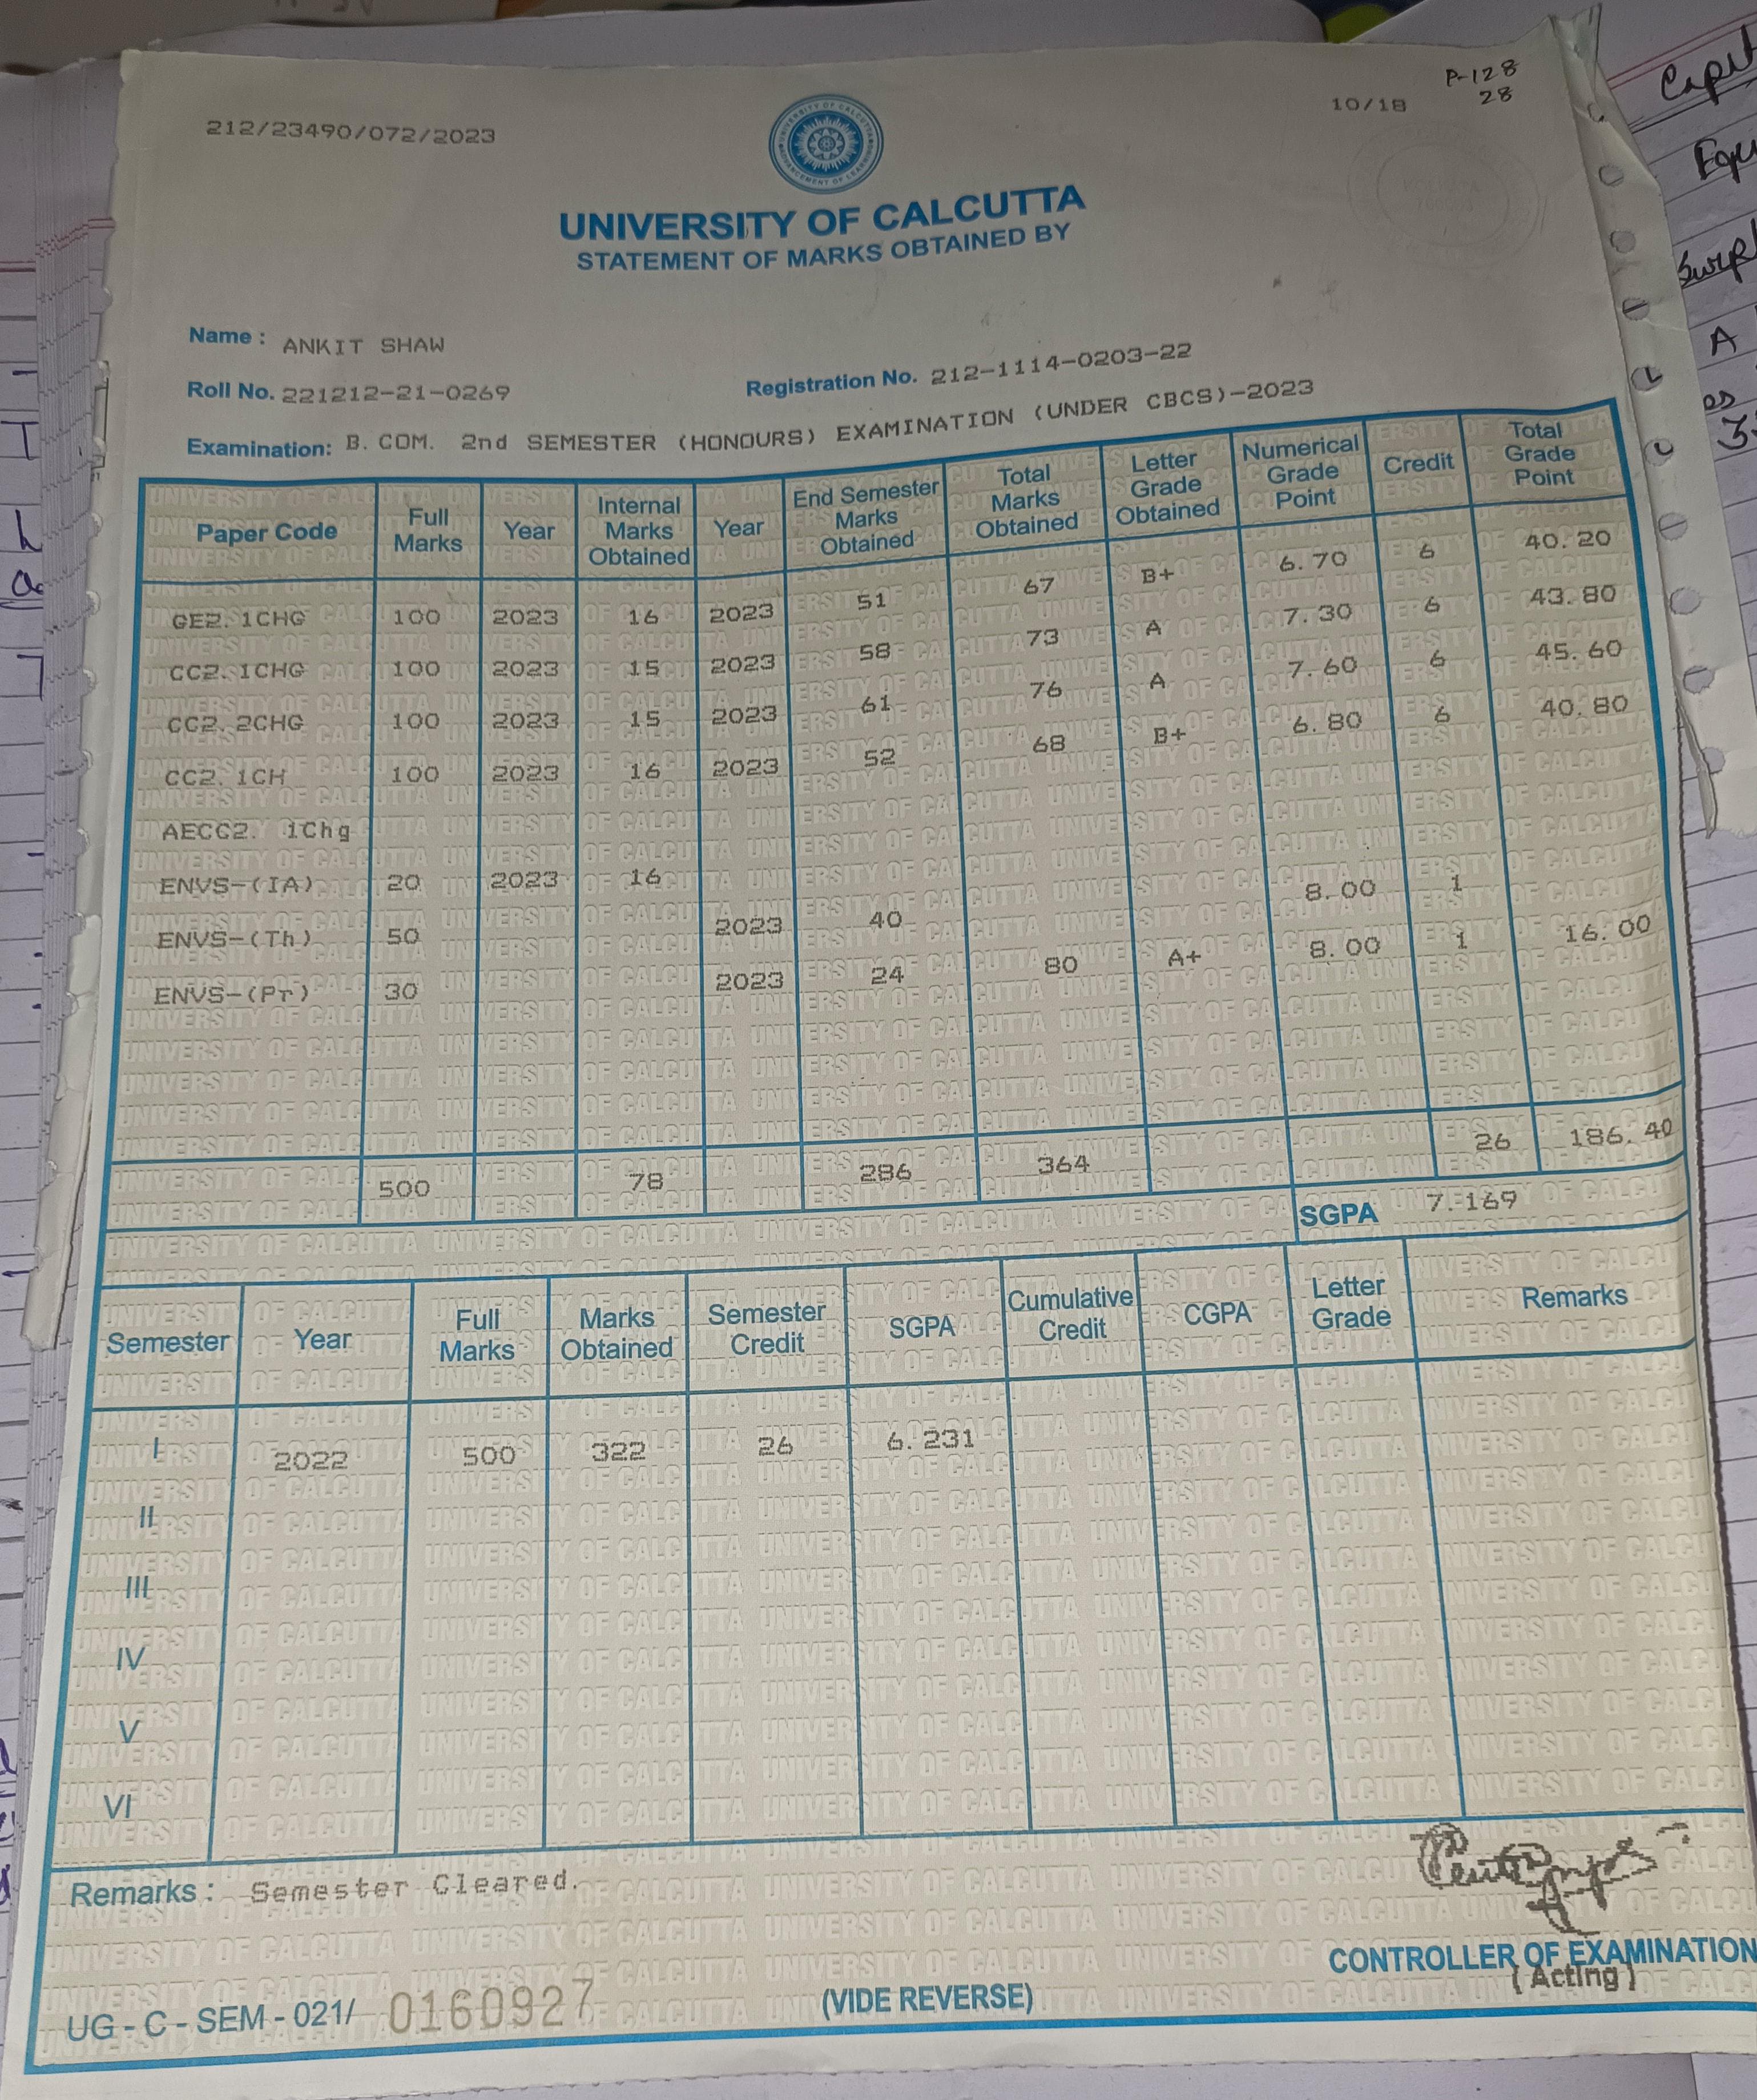 P-128
28
10/18
212/23490/072/2023
UNIVERSITY OF CALCUTTA
STATEMENT OF MARKS OBTAINED BY
Name : ANKIT SHAW
Roll No. 221212-21-0269 Registration No. 212-1114-0203-22
Examination: B. COM. 2nd SEMESTER (HONOURS) EXAMINATION (UNDER CBCS)-2023
Paper Code Full Marks Year Internal Marks Obtained Year End Semester Marks Obtained Total Marks Obtained Letter Grade Obtained Numerical Grade Point Credit Total Grade Point
GE2. 1CHG 100 2023 16 2023 51 67 B+ 6.70 6 40.20
CC2. 1CHG 100 2023 15 2023 58 73 A 7.30 6 43.80
CC2. 2CHG 100 2023 15 2023 61 76 A 7.60 6 45.60
CC2. 1CH 100 2023 16 2023 52 68 B+ 6.80 6 40.80
AECC2. 1Chg
ENVS-(IA) 20 2023 16
ENVS-(Th) 50 2023 40 8.00 1
ENVS-(Pr) 30 2023 24 80 A+ 8.00 1 16.00
500 78 286 364 26 186.40
SGPA 7.169
Semester Year Full Marks Marks Obtained Semester Credit SGPA Cumulative Credit CGPA Letter Grade Remarks
I 2022 500 322 26 6.231
II
III
IV
V
VI
Remarks : Semester Cleared.
CONTROLLER OF EXAMINATION
(Acting)
UG - C - SEM - 021/ 0160927 (VIDE REVERSE)